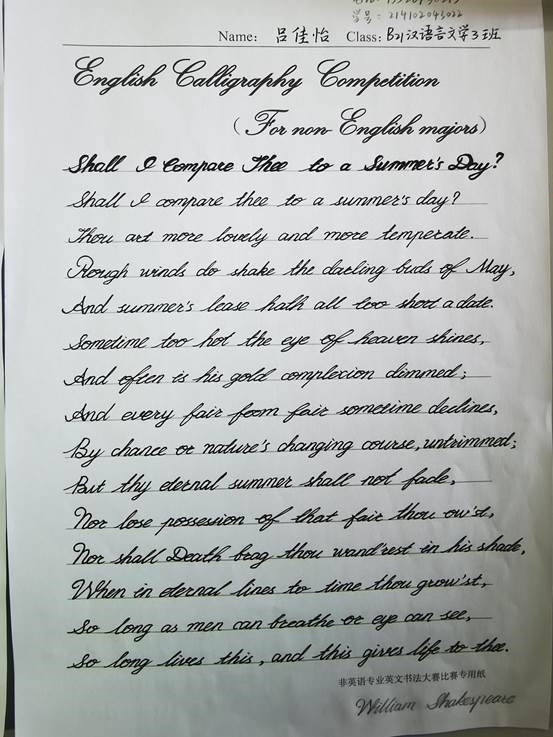 学号: 214102043022
Name: 吕佳怡 Class: B21汉语言文学3班
English Calligraphy Competition
(For non-English majors)
Shall I Compare Thee to a Summer's Day?
Shall I compare thee to a summer's day?
Thou art more lovely and more temperate.
Rough winds do shake the darling buds of May,
And summer's lease hath all too short a date.
Sometime too hot the eye of heaven shines,
And often is his gold complexion dimmed;
And every fair from fair sometime declines,
By chance or nature's changing course, untrimmed;
But thy eternal summer shall not fade,
Nor lose possession of that fair thou ow'st,
Nor shall Death brag thou wand'rest in his shade,
When in eternal lines to time thou grow'st,
So long as men can breathe or eye can see,
So long lives this, and this gives life to thee.
非英语专业英文书法大赛比赛专用纸
William Shakespeare